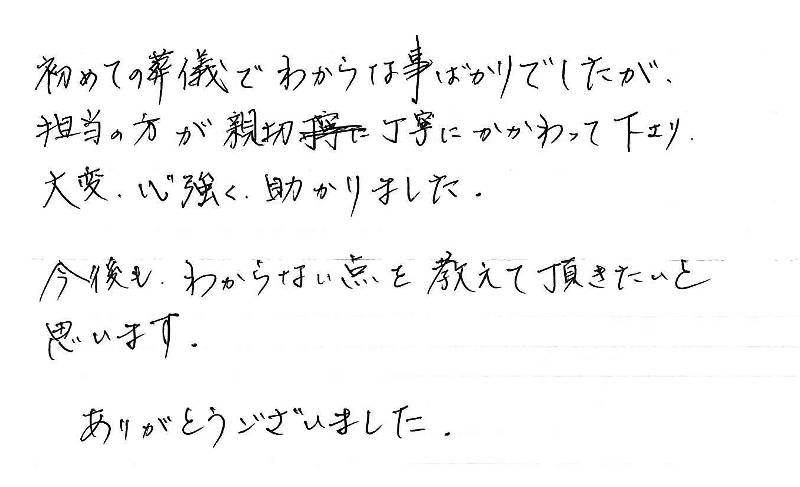 初めての葬儀でわからな事ばかりでしたが、
担当の方が親切丁寧にかかわって下さり、
大変、心強く、助かりました。
今後も、わからない点を教えて頂きたいと
思います。
ありがとうございました。